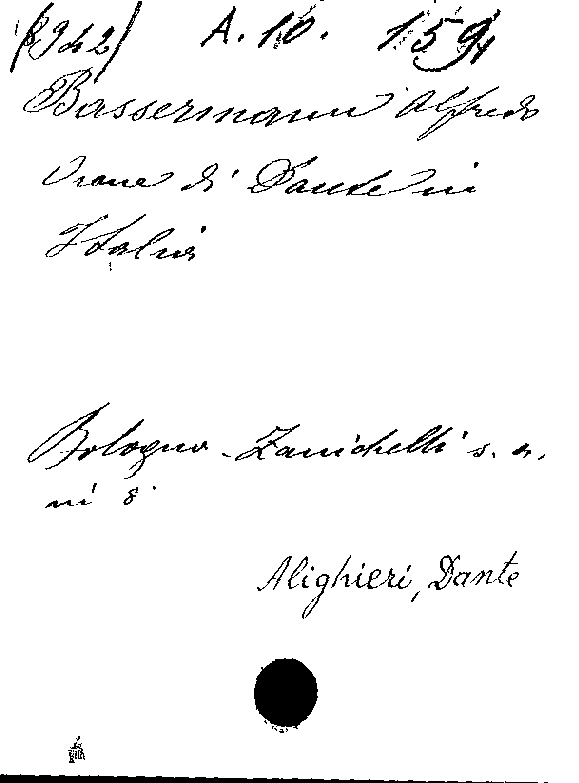 (8342) A. 10. 1594
Bassermann Alfredo
Orme di Dante in
Italia
Bologna - Zanichelli s. a.
in 8°
Alighieri, Dante